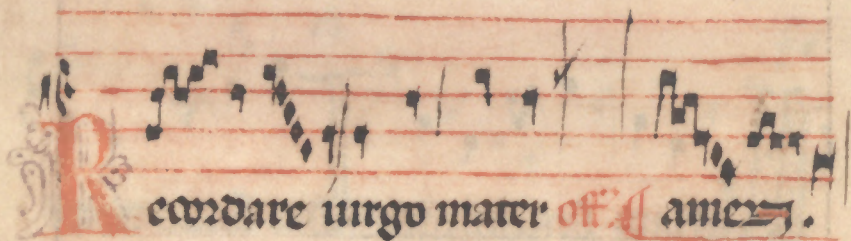 Recordare uirgo mater off. ¶ amen.